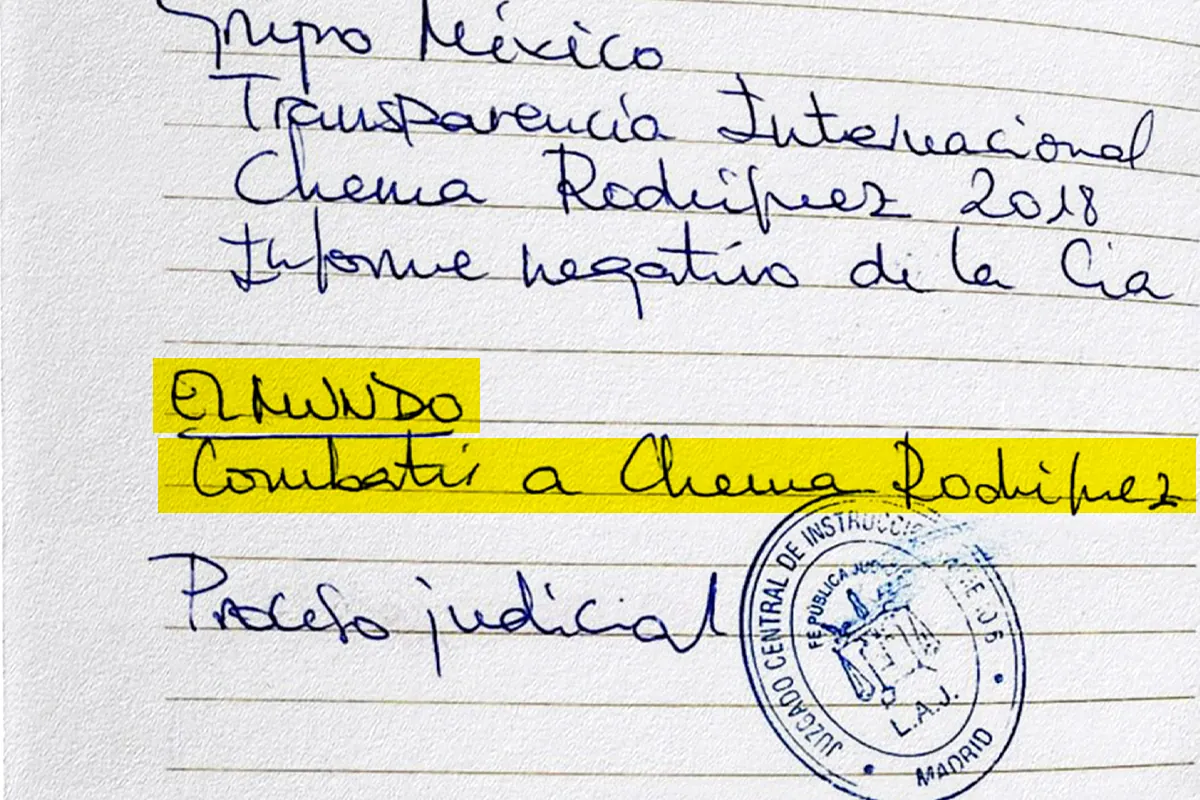 Grupo México
Transparencia Internacional
Chema Rodríguez 2018
Informe negativo de la Cia
EL MUNDO
Combatir a Chema Rodríguez
Proceso judicial
JUZGADO CENTRAL DE INSTRUCCIÓN
FE PÚBLICA
L.A.J.
MADRID